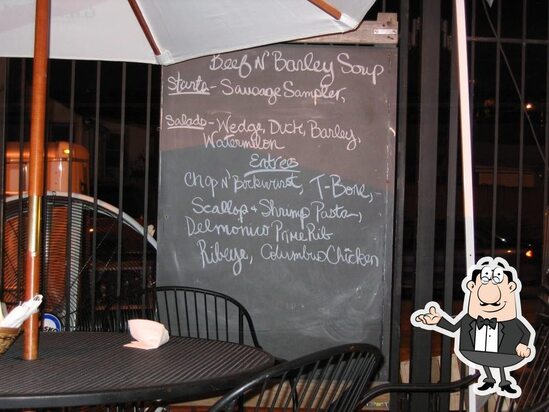 Beef N' Barley Soup
Starts - Sausage Sampler,
Salads - Wedge, Duck, Barley,
Watermelon
Entrees
Chop N' Bockwurst, T-Bone,
Scallop & Shrimp Pasta,
Delmonico Prime Rib
Ribeye, Columbus Chicken